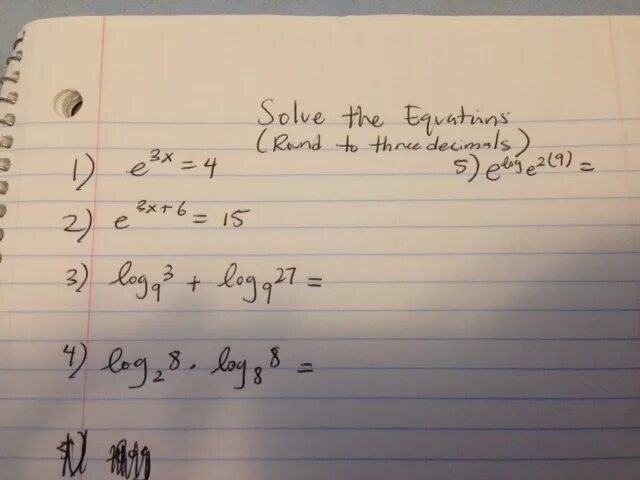 Solve the Equations
(Round to three decimals)
1) e^3x = 4
5) e^log e^2(9) =
2) e^3x+6 = 15
3) log₉3 + log₉27 =
4) log₂8 · log₈8 =